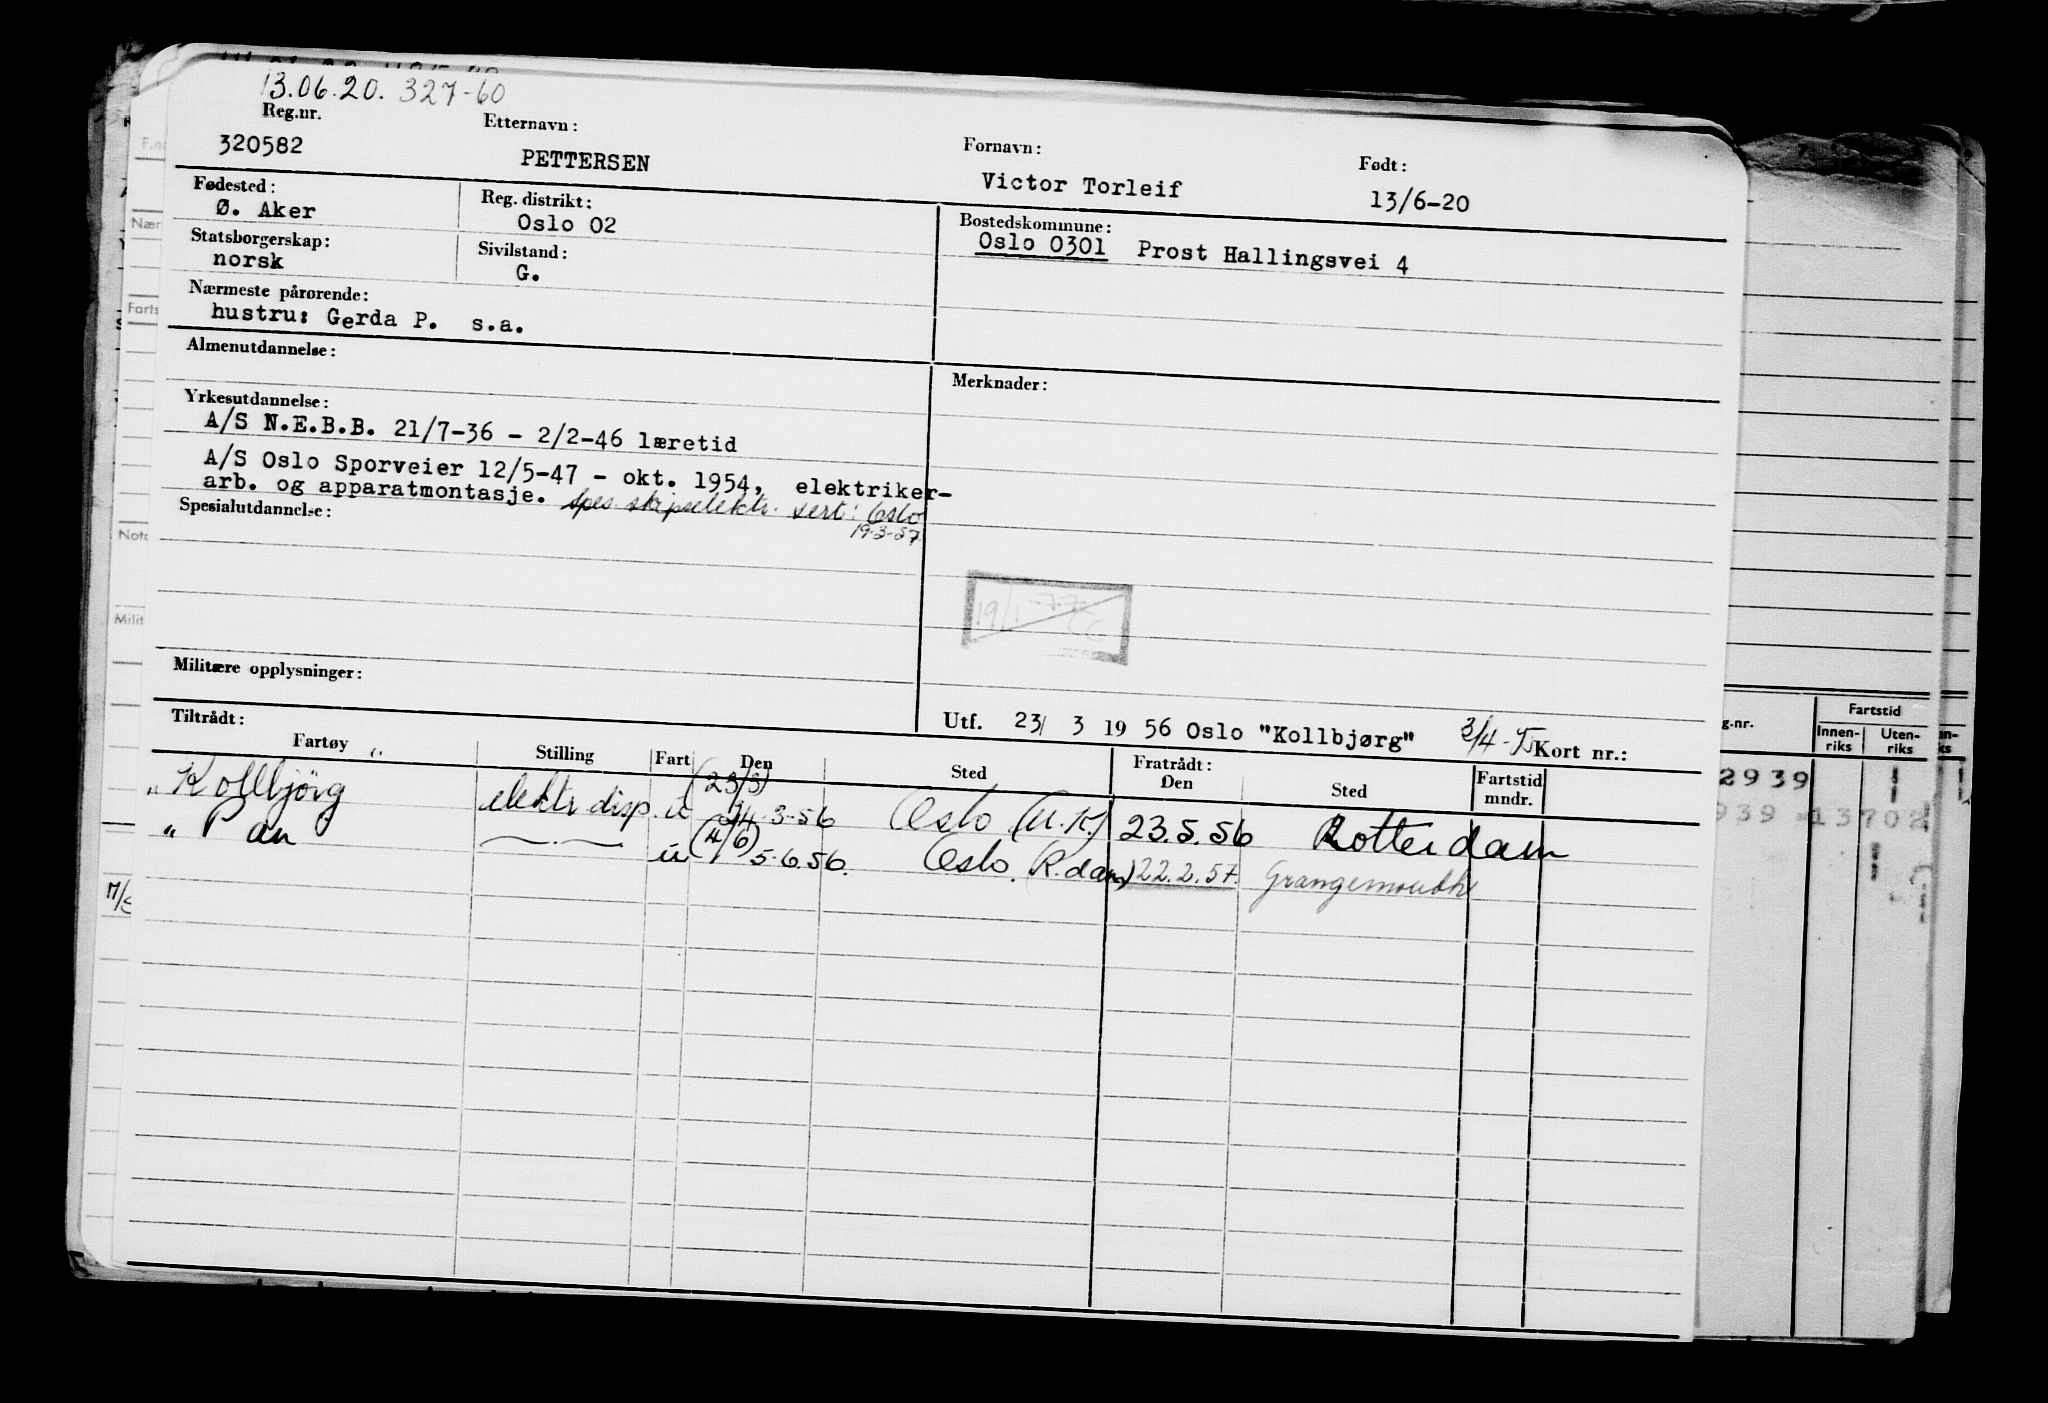 13.06.20. 327-60
Reg.nr. Etternavn: Fornavn: Født:
320582 PETTERSEN Victor Torleif 13/6-20
Fødested: Reg. distrikt: Bostedskommune:
Ø. Aker Oslo 02 Oslo 0301 Prost Hallingsvei 4
Statsborgerskap: Sivilstand:
norsk G.
Nærmeste pårørende:
hustru: Gerda P. s.a.
Almenutdannelse: Merknader:
Yrkesutdannelse:
A/S N.E.B.B. 21/7-36 - 2/2-46 læretid
A/S Oslo Sporveier 12/5-47 - okt. 1954, elektriker-
arb. og apparatmontasje. spes. skipselektr. sert: Oslo
19-3-57
Spesialutdannelse:
19/1-77
Militære opplysninger:
Tiltrådt: Utf. 23/ 3 19 56 Oslo "Kollbjørg" 3/4- Kort nr.:
Fartøy Stilling Fart Den Sted Fratrådt: Den Sted Fartstid mndr.
(23/3)
" Kollbjörg elektr. disp. u 24.3-56 Oslo (U.K.) 23.5.56 Rotterdam
(4/6)
" Pan —.— u 5.6.56. Oslo. (R.dam) 22.2.57. Grangemouth
g.nr. Fartstid
Innen-riks Uten-riks
2939
939 13702